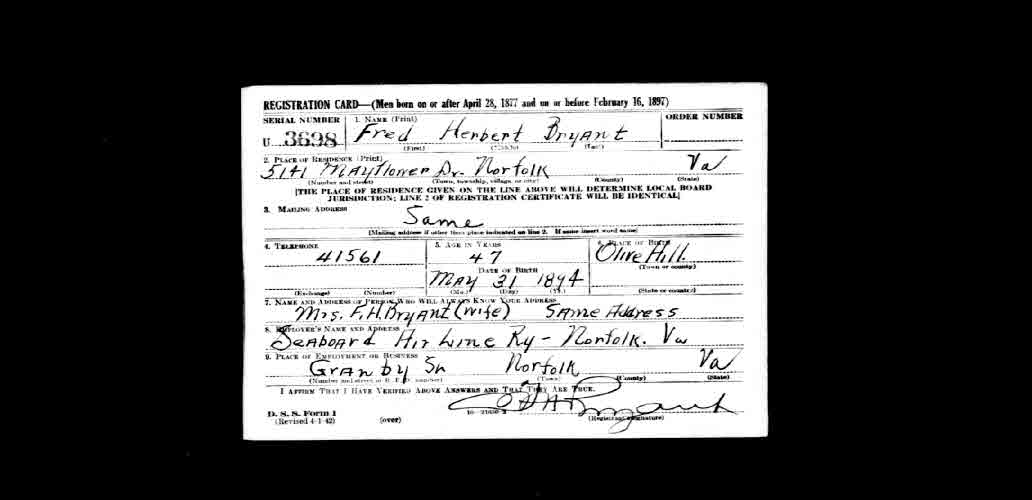 REGISTRATION CARD—(Men born on or after April 28, 1877 and on or before February 16, 1897)
SERIAL NUMBER 1. NAME (Print) ORDER NUMBER
U 3698 Fred Herbert Bryant
(First) (Middle) (Last)
2. PLACE OF RESIDENCE (Print)
5141 Mayflower Dr. Norfolk Va
(Number and street) (Town, township, village, or city) (County) (State)
[THE PLACE OF RESIDENCE GIVEN ON THE LINE ABOVE WILL DETERMINE LOCAL BOARD
JURISDICTION; LINE 2 OF REGISTRATION CERTIFICATE WILL BE IDENTICAL]
3. MAILING ADDRESS
Same
[Mailing address if other than place indicated on line 2. If same insert word same]
4. TELEPHONE 5. AGE IN YEARS 6. PLACE OF BIRTH
41561 47 Olive Hill
DATE OF BIRTH (Town or county)
May 31 1894
(Exchange) (Number) (Mo.) (Day) (Yr.) (State or country)
7. NAME AND ADDRESS OF PERSON WHO WILL ALWAYS KNOW YOUR ADDRESS
Mrs. F.H. Bryant (wife) Same Address
8. EMPLOYER'S NAME AND ADDRESS
Seaboard Air Line Ry - Norfolk. Va
9. PLACE OF EMPLOYMENT OR BUSINESS
Granby Norfolk Va
(Number and street or R. F. D. number) (Town) (County) (State)
I AFFIRM THAT I HAVE VERIFIED ABOVE ANSWERS AND THAT THEY ARE TRUE.
D. S. S. Form 1
(Revised 4-1-42) (over) Bryant
(Registrant's signature)